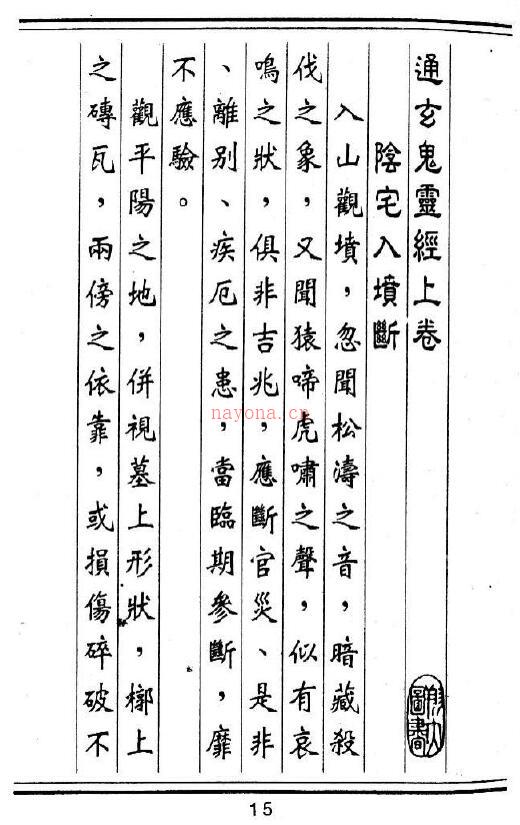 通玄鬼靈經上卷
陰宅入墳斷
入山觀墳，忽聞松濤之音，暗藏殺
伐之象，又聞猿啼虎嘯之聲，似有哀
鳴之狀，俱非吉兆，應斷官災、是非
、離別、疾厄之患，當臨期參斷，靡
不應驗。
觀平陽之地，併視墓上形狀，槨上
之磚瓦，兩傍之依靠，或損傷碎破不
nayona.cn
圖書
15